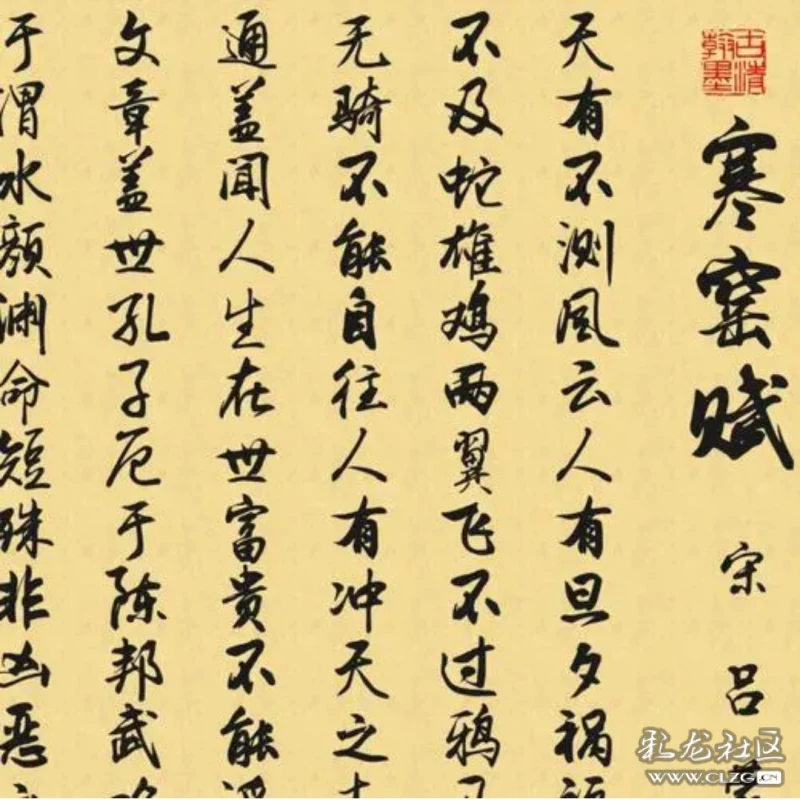 寒窑赋 宋 吕
天有不测风云人有旦夕祸
不及蛇雄鸡两翼飞不过鸦
无骑不能自往人有冲天之
通盖闻人生在世富贵不能
文章盖世孔子厄于陈邦武
于渭水颜渊命短殊非凶恶
古清翰墨
彩龙社区
www.CLZG.CN